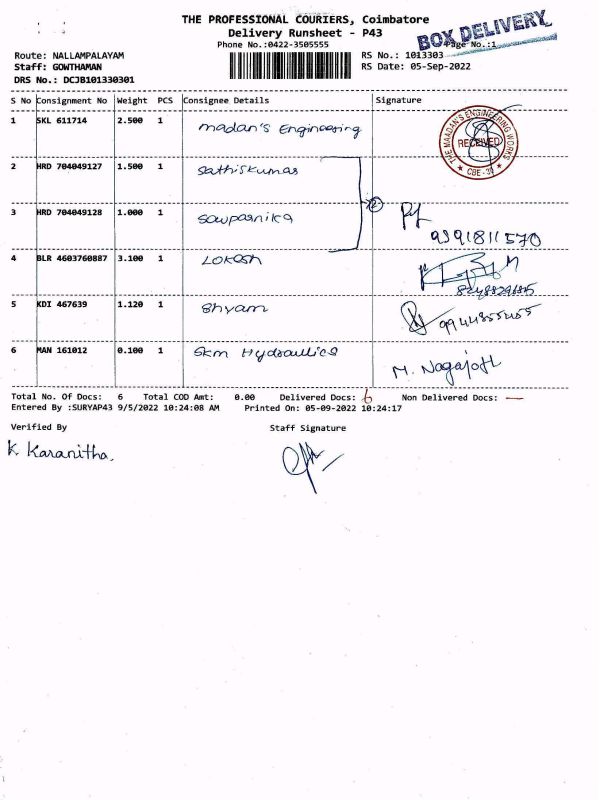 THE PROFESSIONAL COURIERS, Coimbatore
Delivery Runsheet - P43
Phone No.:0422-3505555
BOX DELIVERY
Page No.:1
Route: NALLAMPALAYAM
RS No.: 1013303
Staff: GOWTHAMAN
RS Date: 05-Sep-2022
DRS No.: DCJB101330301
S No Consignment No Weight PCS Consignee Details Signature
1 SKL 611714 2.500 1 Madan's Engineering
THE MAADAN'S ENGINEERING WORKS
RECEIVED
CBE - 30
2 HRD 704049127 1.500 1 Sathiskumar
3 HRD 704049128 1.000 1 Sowparnika
2
9391811570
4 BLR 4603760887 3.100 1 Lokesh
5 KDI 467639 1.120 1 Shyam
9944855455
6 MAN 161012 0.100 1 Skm Hydraullics
M. Nagajoti
Total No. Of Docs: 6 Total COD Amt: 0.00 Delivered Docs: 6 Non Delivered Docs: —
Entered By :SURYAP43 9/5/2022 10:24:08 AM Printed On: 05-09-2022 10:24:17
Verified By Staff Signature
K Karanitha.